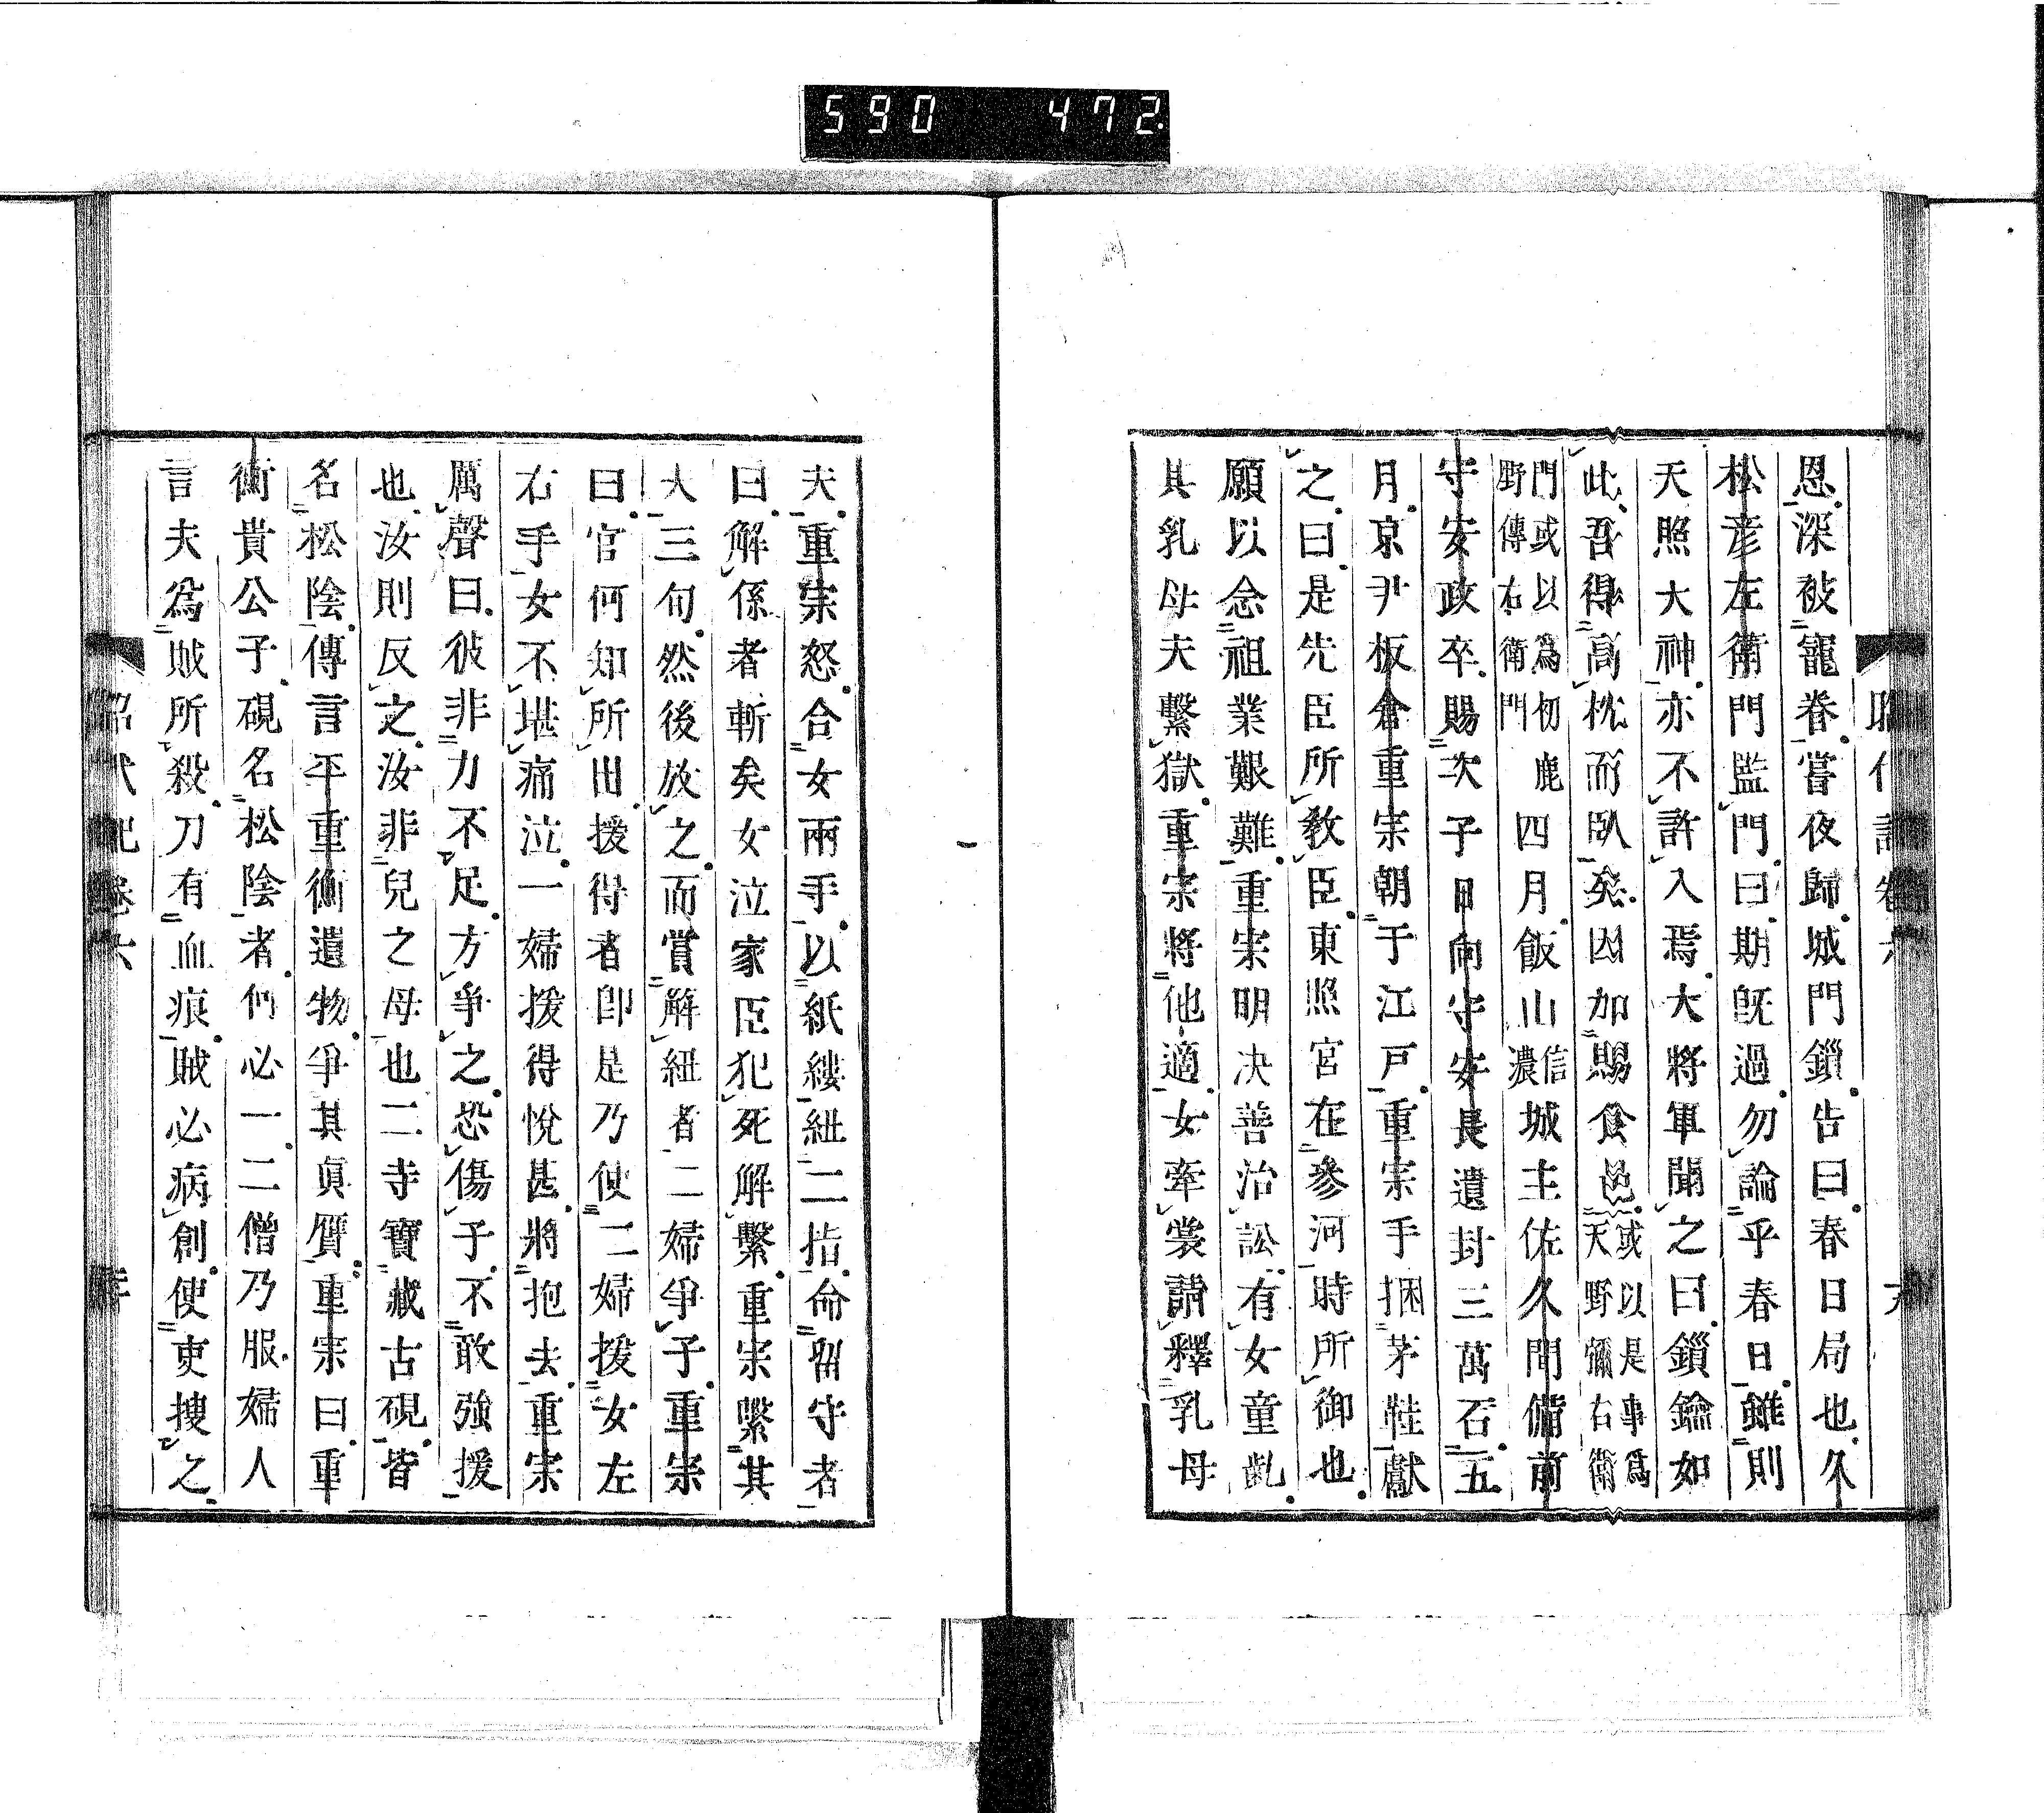 590 472
恩深被寵眷嘗夜歸城門鎖告曰春日局也久
松彥左衛門監門曰期既過勿論乎春日雖則
天照大神亦不許入焉大將軍聞之曰鎖鑰如
此吾得高枕而臥矣因加賜食邑或以是事爲天野彌右衛
門或以爲初鹿野傳右衛門四月飯山信濃城主佐久間備前
守安政卒賜次子日向守安長遺封三萬石五
月京尹板倉重宗朝于江戸重宗手捆茅鞋獻
之曰是先臣所敎臣東照宮在參河時所御也
願以念祖業艱難重宗明决善治訟有女童亂
其乳母夫繫獄重宗將他適女牽裳請釋乳母
夫重宗怒合女兩手以紙縷紐二指命留守者
曰解係者斬矣女泣家臣犯死解繫重宗繫其
人三旬然後放之而賞解紐者二婦爭子重宗
曰官何知所出援得者卽是乃使二婦援女左
右手女不堪痛泣一婦援得悅甚將抱去重宗
厲聲曰彼非力不足方爭之恐傷子不敢強援
也汝則反之汝非兒之母也二寺寶藏古硯皆
名松陰傳言平重衡遺物爭其眞贋重宗曰重
衡貴公子硯名松陰者們必一二僧乃服婦人
言夫爲賊所殺刀有血痕賊必病創使吏搜之